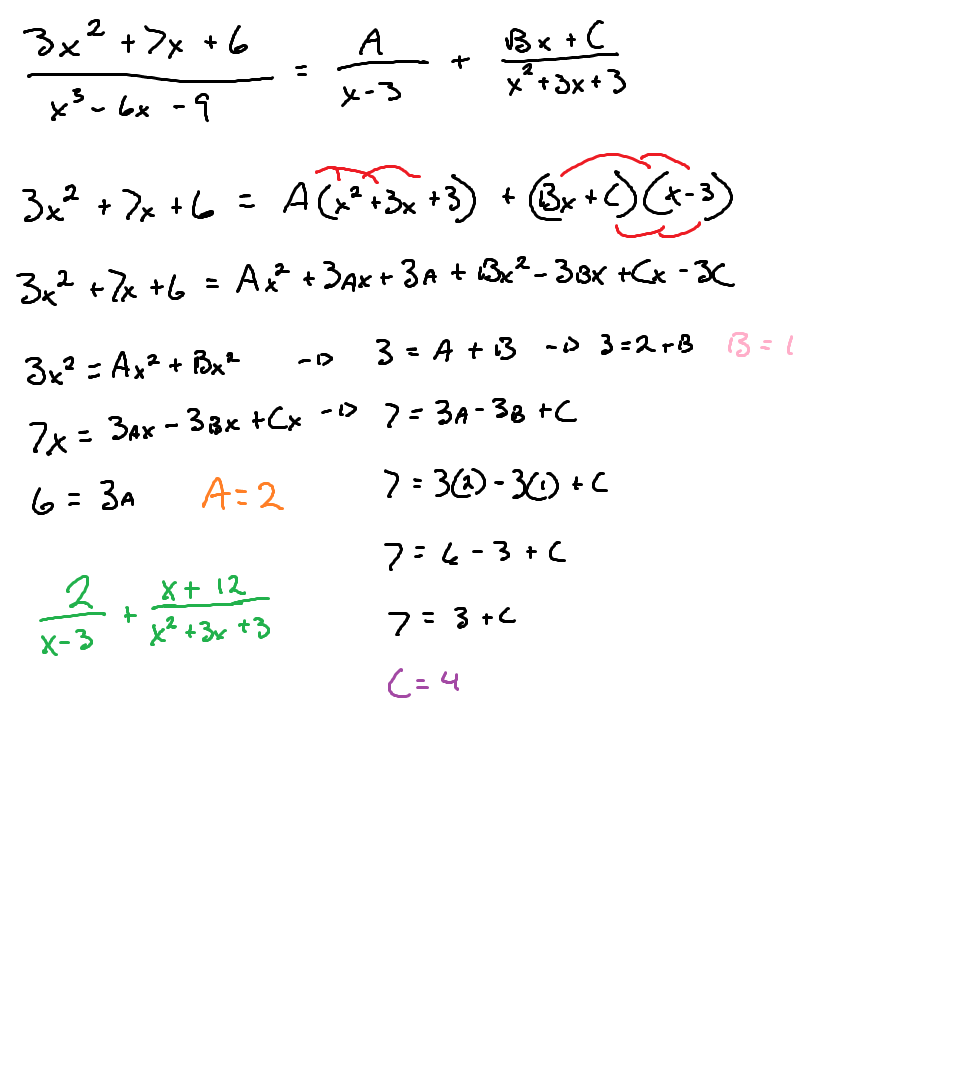 3x² + 7x + 6 / x³ - 6x - 9 = A / x-3 + Bx + C / x² + 3x + 3
3x² + 7x + 6 = A(x² + 3x + 3) + (Bx + C)(x - 3)
3x² + 7x + 6 = Ax² + 3Ax + 3A + Bx² - 3Bx + Cx - 3C
3x² = Ax² + Bx² -> 3 = A + B -> 3 = 2 + B B = 1
7x = 3Ax - 3Bx + Cx -> 7 = 3A - 3B + C
6 = 3A A = 2 7 = 3(2) - 3(1) + C
7 = 6 - 3 + C
2 / x-3 + x + 12 / x² + 3x + 3
7 = 3 + C
C = 4